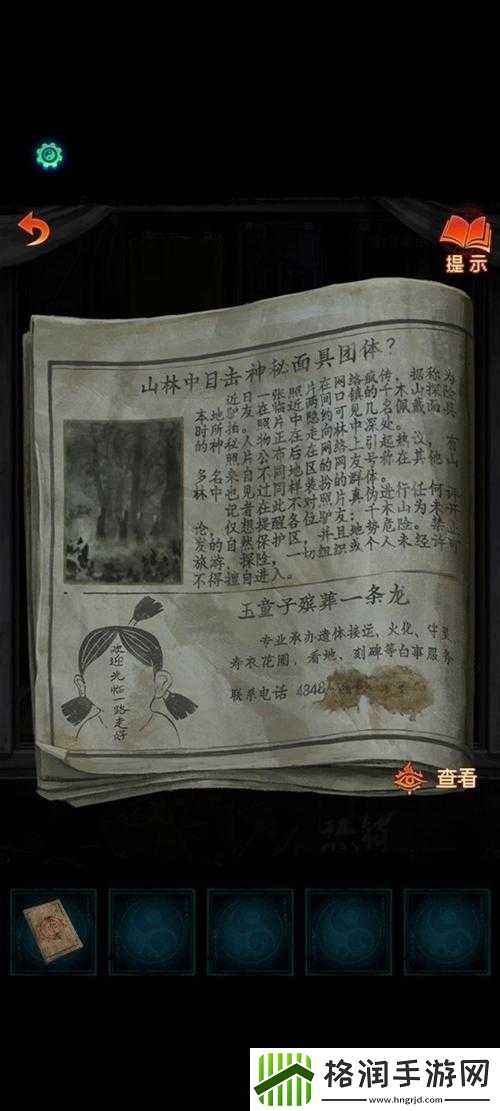 提示
山林中目击神秘面具团体？
近日一张照片在网络疯传，据称为
本地驴友在临近两间口镇的千木山探险
时所拍。照片中隐约可见几名佩戴面具
的神秘人物正在走向林中深处。
照片公布后在网络上引起热议，有
多名来自不同地区的网友号称在其他山
林中也见过同样装扮的群体。
记者不想在此对照片真伪进行任何评
论，仅提醒各位驴友：千木山为未开
发的自然保护区，并且地势危险。禁止
旅游、探险，一切组织或个人未经许可
不得擅自进入。
玉童子殡葬一条龙
专业承办遗体接运、火化、守灵
寿衣花圈，看地、刻碑等白事服务
联系电话 4348-
欢迎光临一路走好
查看
格润手游网
www.hngrjd.com